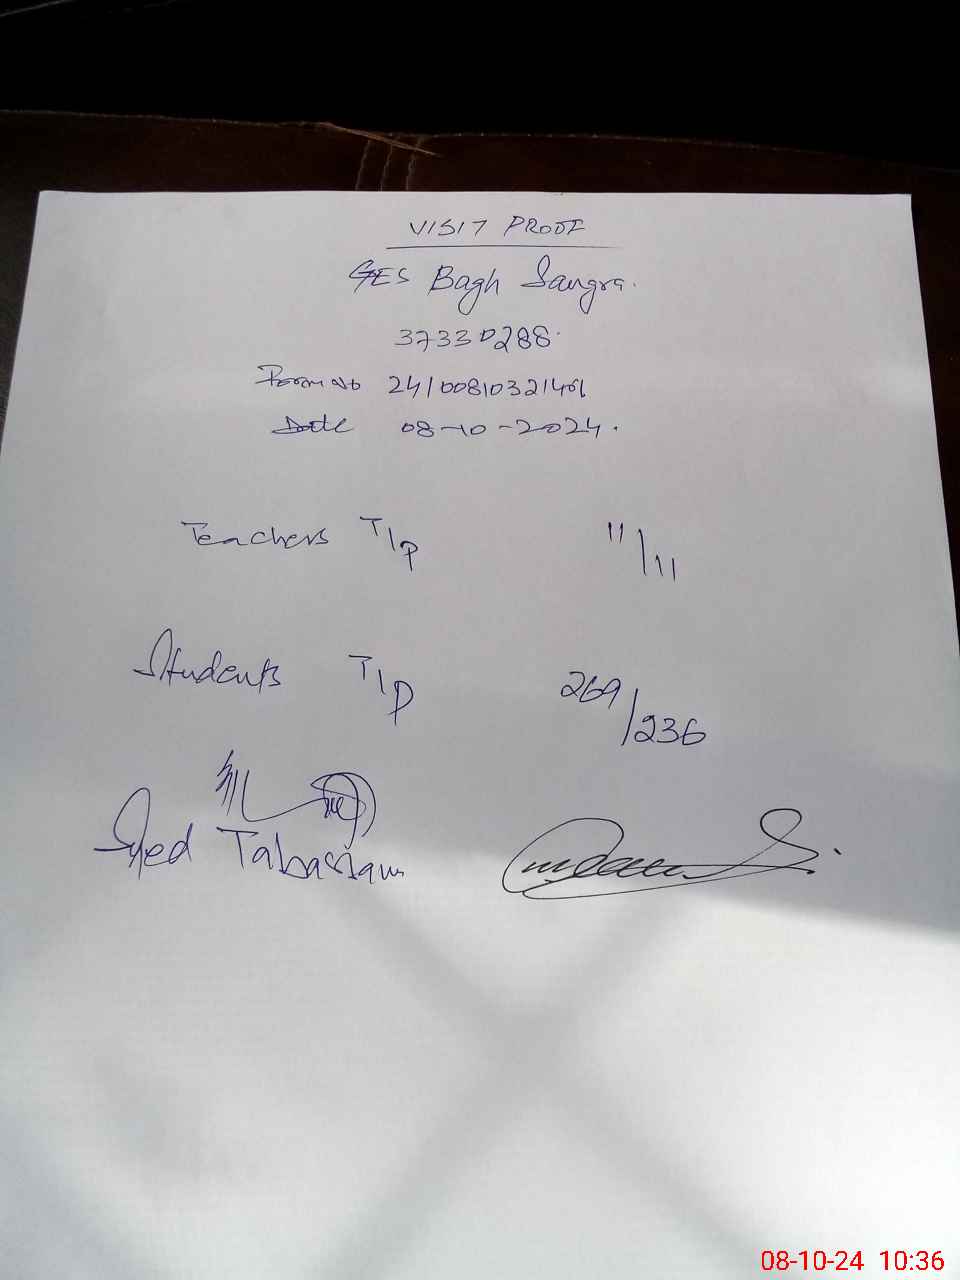 VISIT PROOF
GES Bagh Sangra.
37330288
Form No 24100810321401
Date 08-10-2024.
Teachers T/P 11/11
Students T/P 269/236
Syed Tabassam
08-10-24 10:36